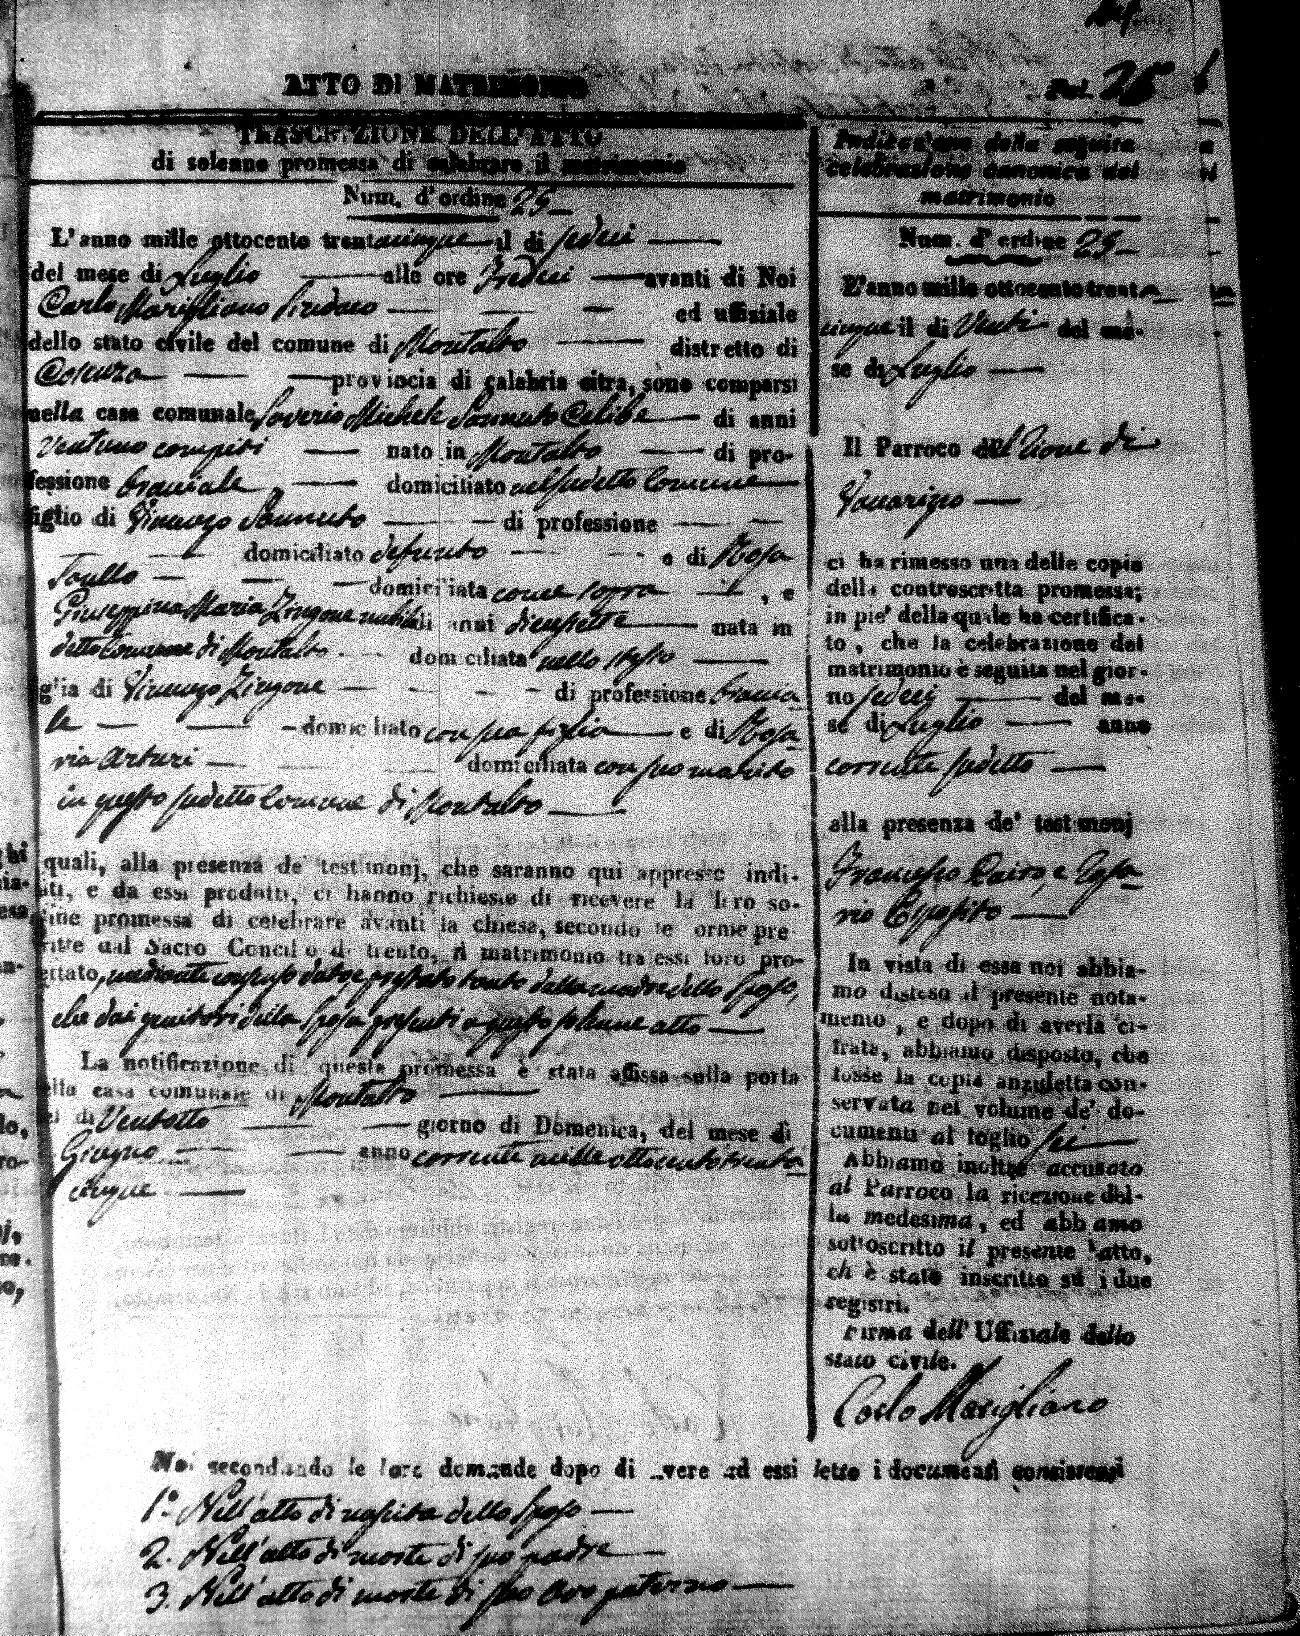 ATTO DI MATRIMONIO
Fol. 25
TRASCRIZIONE DELL'ATTO
di solenne promessa di celebrare il matrimonio
Num. d'ordine 25
L'anno mille ottocento trentacinque il di sedeci
del mese di Luglio alle ore Tredeci avanti di Noi
Carlo Marigliano Sindaco ed uffiziale
dello stato civile del comune di Montalto distretto di
Cosenza provincia di calabria citra, sono comparsi
nella casa comunale Saverio Michele Sannuto Celibe di anni
Ventuno compiti nato in Montalto di pro-
fessione bracciale domiciliato nel sudetto Comune
figlio di Vincenzo Sannuto di professione
domiciliato defunto e di Rosa
domiciliata come sopra , e
Giuseppina Maria Zingone nubile di anni diecisette nata in
detto Comune di Montalto domiciliata nello stesso
glia di Vincenzo Zingone di professione braccia
le domiciliato con sua figlia e di Rosa
ria Arturi domiciliata con suo marito
in questo sudetto Comune di Montalto
quali, alla presenza de' testimonj, che saranno qui appresso indi-
ati, e da essi prodotti, ci hanno richiesto di ricevere la loro so-
promessa di celebrare avanti la chiesa, secondo le orme pre
ritte dal Sacro Concilio di trento, il matrimonio tra essi loro pro-
ettato, mediante consenso datone prestato tanto dalla madre dello Sposo,
che dai genitori della Sposa presenti a questo solenne atto
La notificazione di questa promessa è stata affissa sulla porta
ella casa comunale di Montalto
el di Ventotto giorno di Domenica, del mese di
Giugno anno corrente mille ottocento trenta
cinque
Indicazione della seguita
celebrazione canonica del
matrimonio
Num. d'ordine 25
L'anno mille ottocento trenta
cinque il di Venti del me-
se di Luglio
Il Parroco del Rione di
Vaccarizzo
ci ha rimesso una delle copie
della controscritta promessa;
in pie' della quale ha certifica-
to, che la celebrazione del
matrimonio è seguita nel gior-
no sedeci del me-
se di Luglio anno
corrente sudetto
alla presenza de' testimonj
Francesco Cairo, e Gesa
rio Esposito
In vista di essa noi abbia-
mo disteso il presente nota-
mento, e dopo di averla ci-
frata, abbiamo disposto, che
fosse la copia anzidetta con-
servata nel volume de' do-
cumenti al foglio sei
Abbiamo inoltre accusato
al Parroco la ricezione del-
la medesima, ed abbiamo
sottoscritto il presente atto,
ch'è stato inscritto su i due
registri.
Firma dell'Uffiziale dello
stato civile.
Carlo Marigliano
Noi secondando le loro demande dopo di avere ad essi letto i documenti consistenti
1.° Nell'atto di nascita dello Sposo
2. Nell'atto di morte di suo padre
3. Nell'atto di morte di suo avo paterno